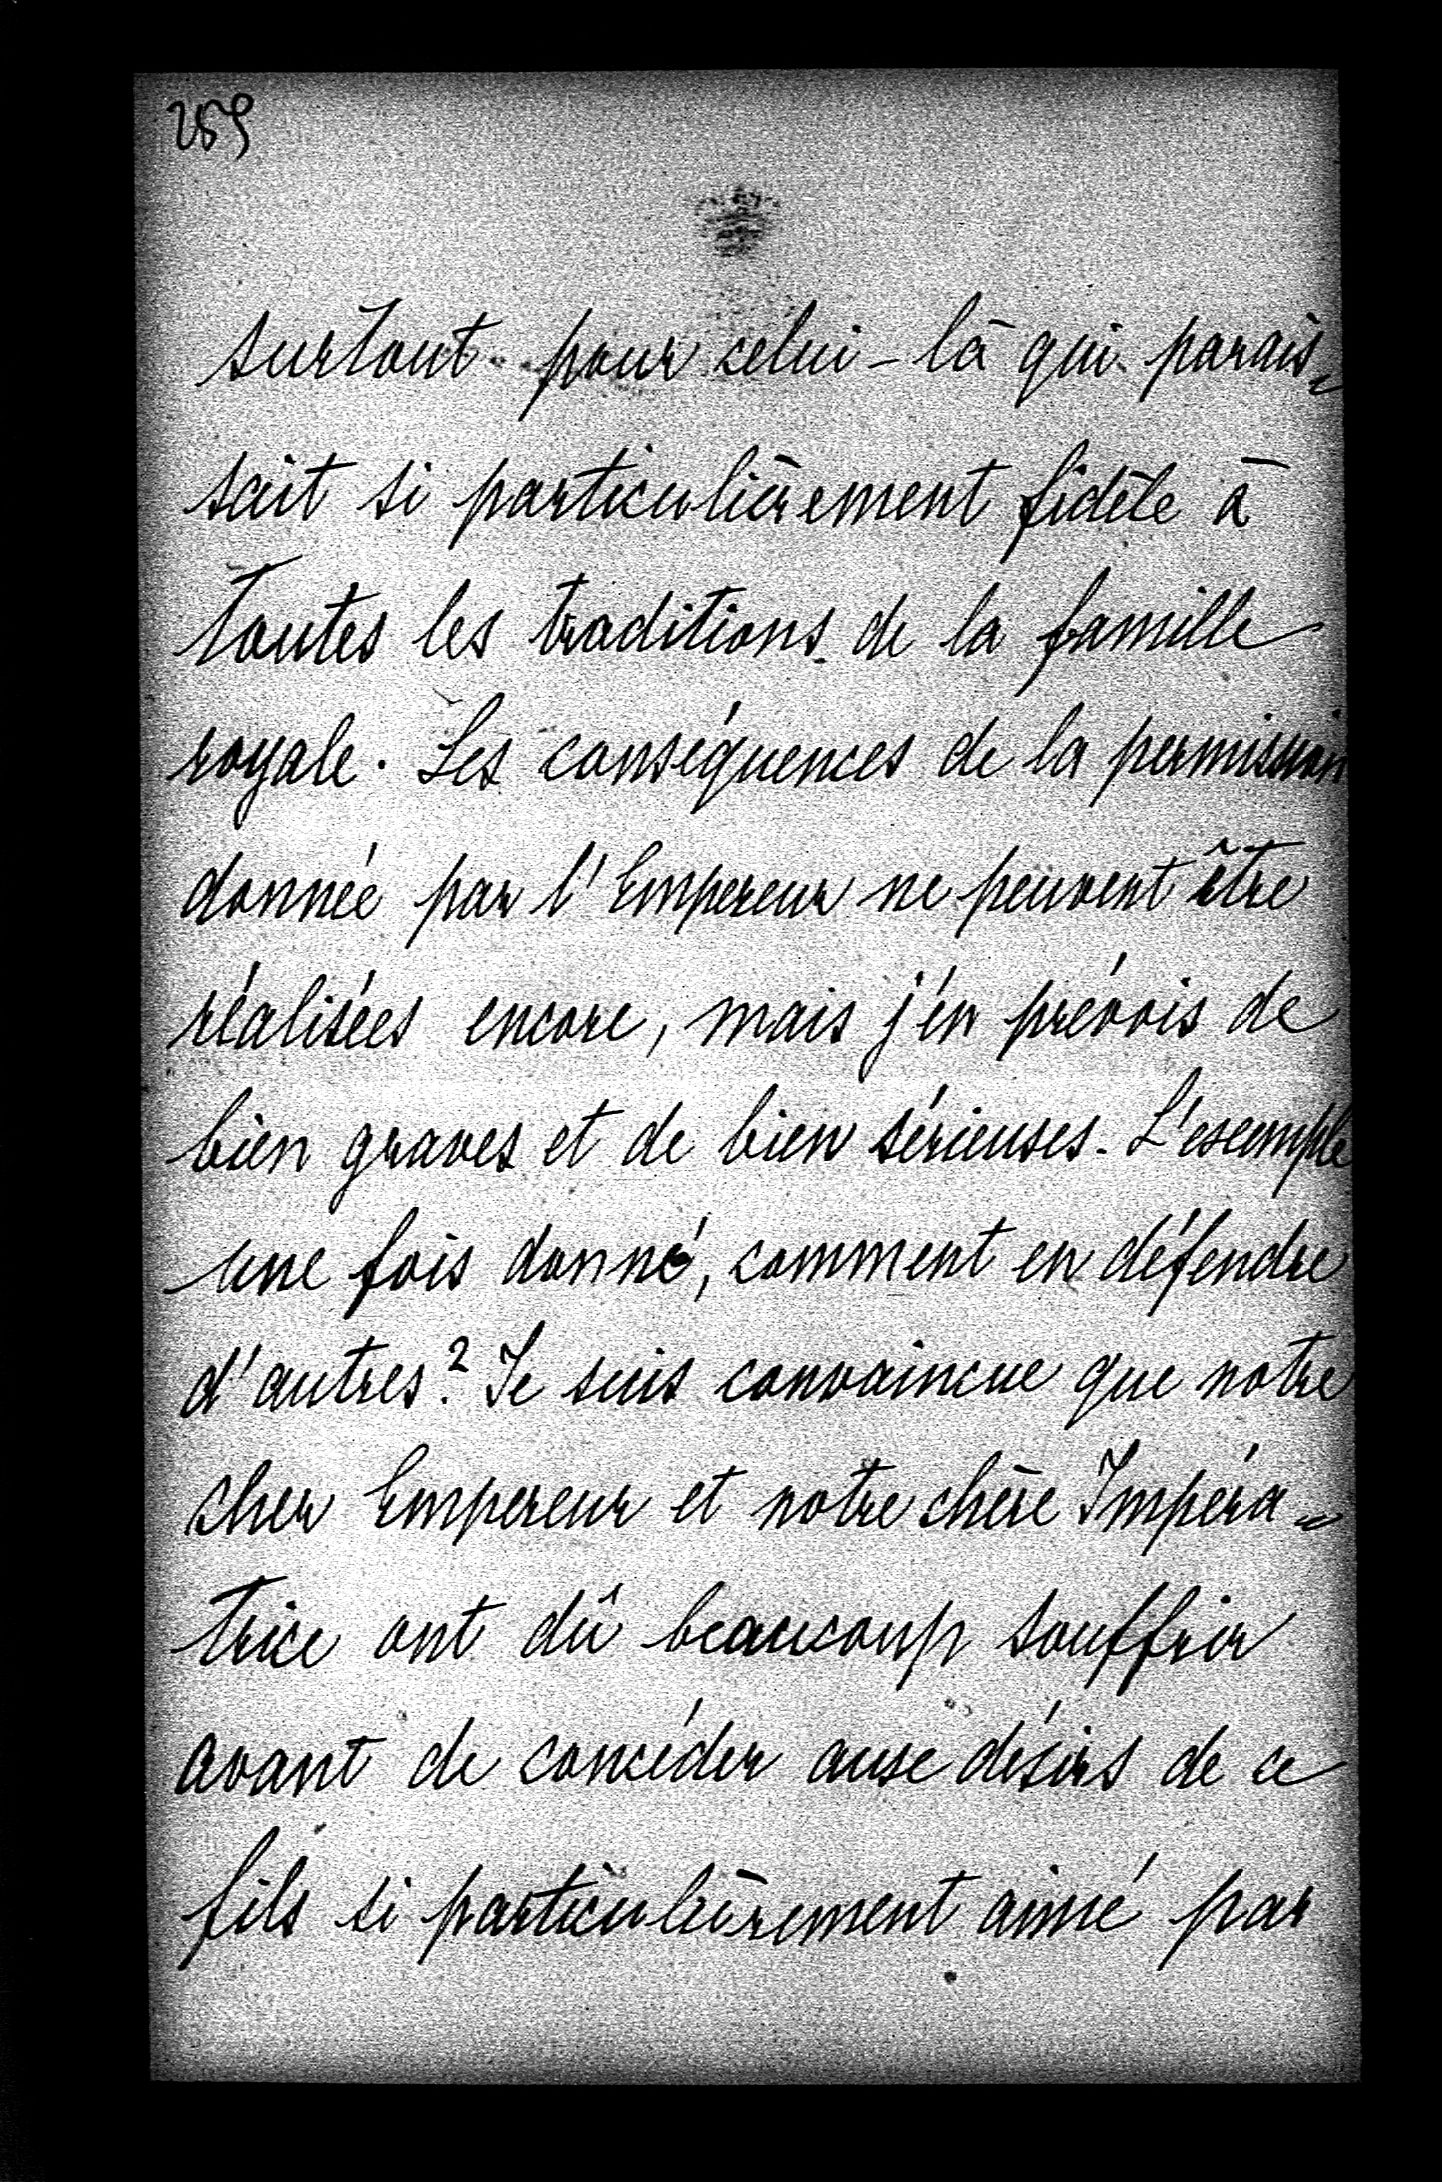 259
surtout pour celui-là qui parais=
sait si particulièrement fidèle à
toutes les traditions de la famille
royale. Les conséquences de la permission
donnée par l'Empereur ne peuvent être
réalisées encore, mais j'en prévois de
bien graves et de bien sérieuses. L'exemple
une fois donné, comment en défendre
d'autres? Je suis convaincue que notre
cher Empereur et notre chère Impéra=
trice ont dû beaucoup souffrir
avant de concéder aux désirs de ce
fils si particulièrement aimé par